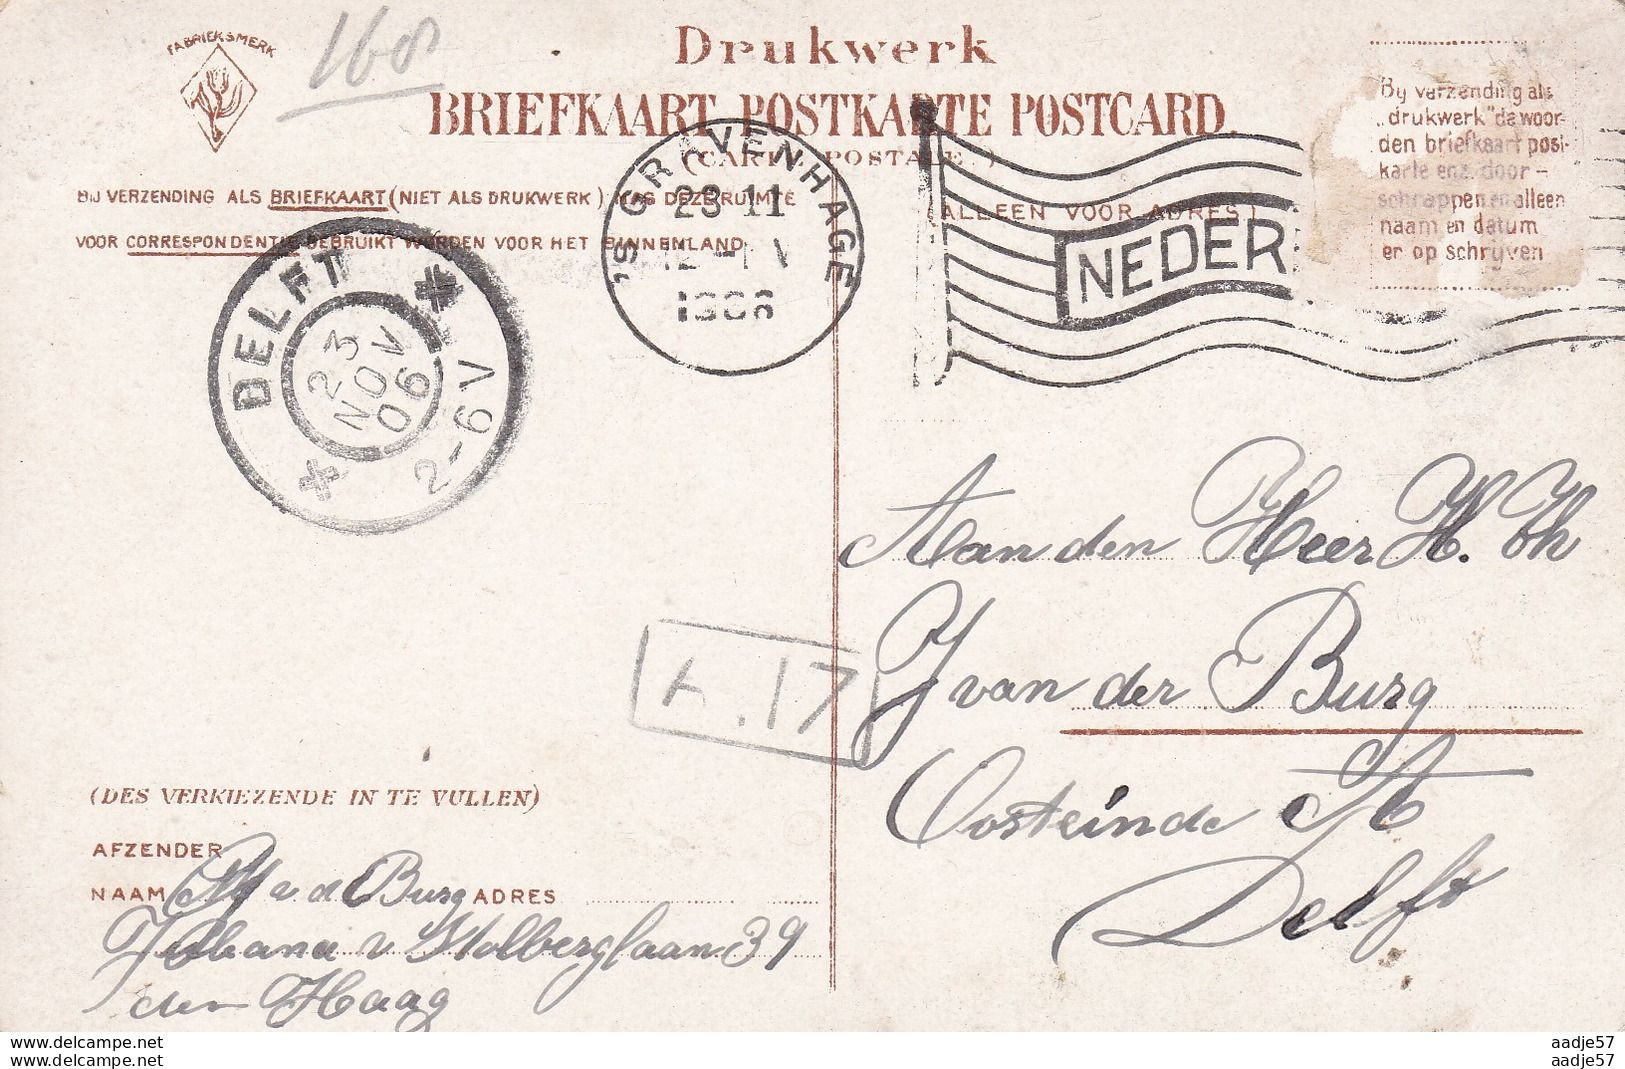 FABRIEKSMERK
168
Drukwerk
BRIEFKAART POSTKARTE POSTCARD.
(CARTE POSTALE.)
BIJ VERZENDING ALS BRIEFKAART (NIET ALS DRUKWERK) MAG DEZE RUIMTE
VOOR CORRESPONDENTIE GEBRUIKT WORDEN VOOR HET BINNENLAND
(ALLEEN VOOR ADRES)
By verzending als
„drukwerk" de woor-
den briefkaart post-
karte enz. door-
schrappen en alleen
naam en datum
er op schrijven
'S GRAVENHAGE
23 11
1906
NEDER
DELFT
23
NOV
06
2-6V
Aan den Heer H. Th
J van der Burg
Oosteinde
Delft
A.17
(DES VERKIEZENDE IN TE VULLEN)
AFZENDER
NAAM v d Burg ADRES
Juliana v Stolberglaan 39
den Haag
www.delcampe.net
www.delcampe.net
aadje57
aadje57